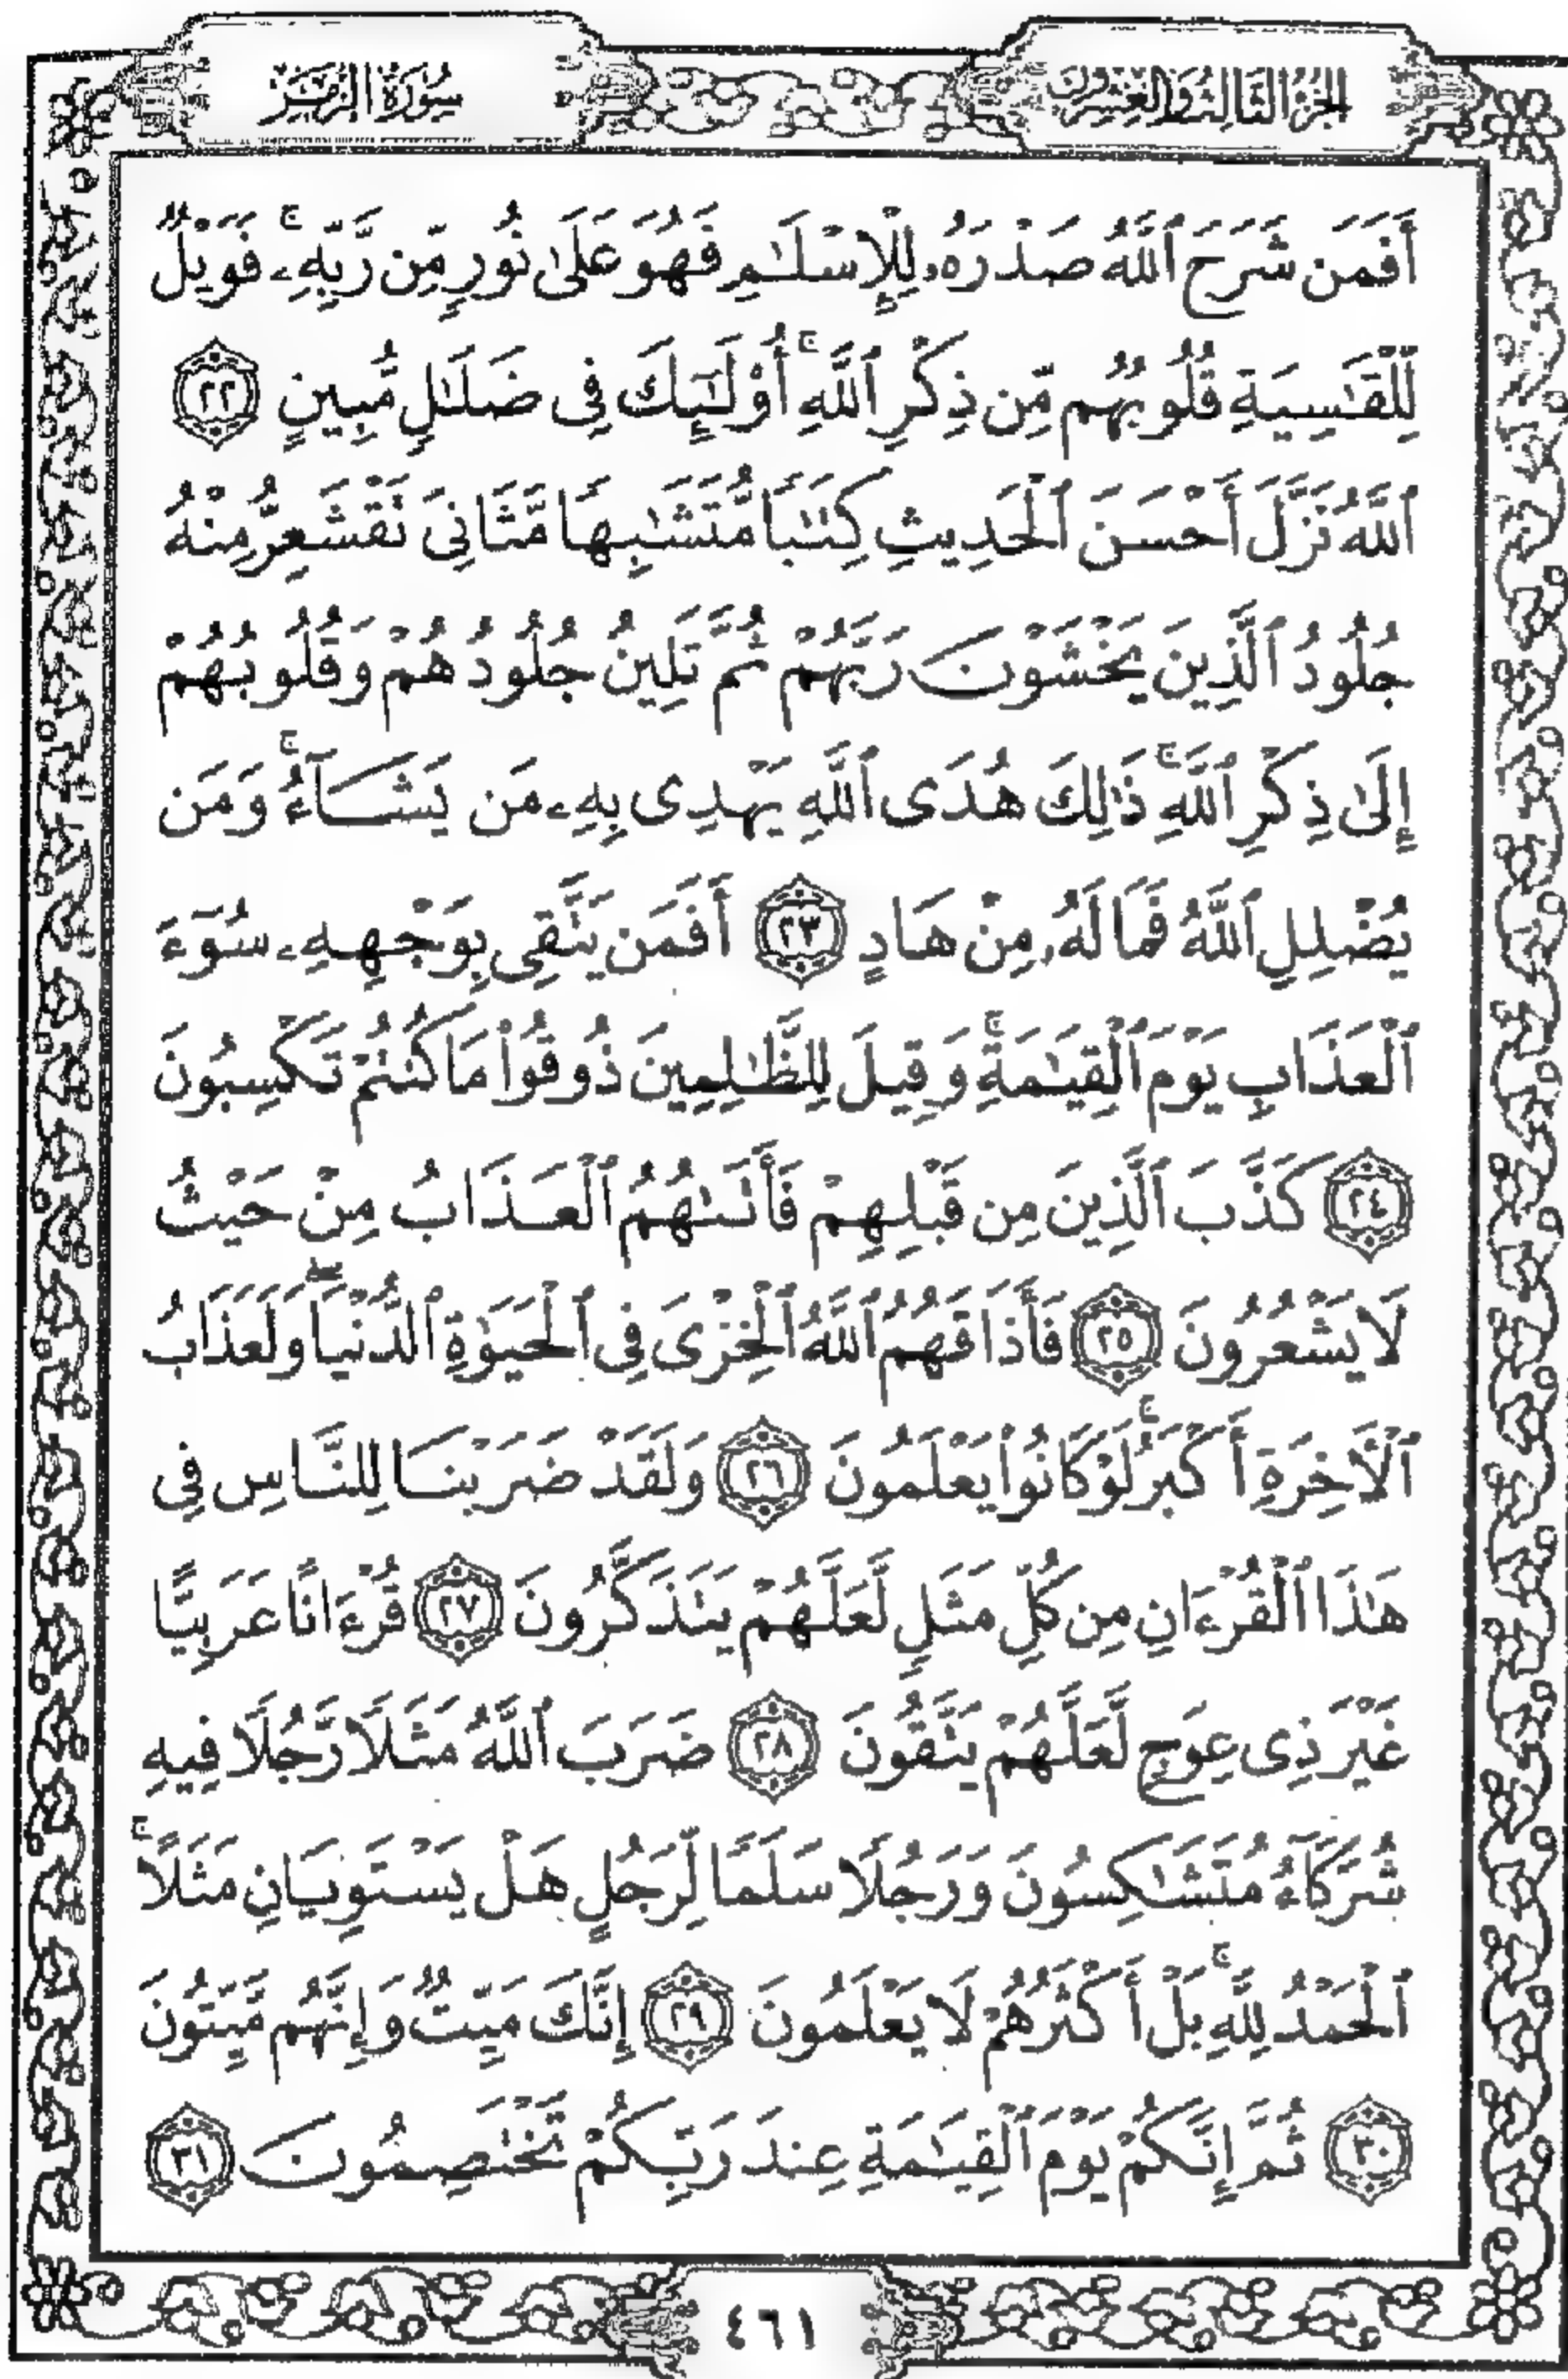 الجزء الثالث والعشرون
سورة الزمر
أَفَمَن شَرَحَ ٱللَّهُ صَدْرَهُۥ لِلْإِسْلَـٰمِ فَهُوَ عَلَىٰ نُورٍ مِّن رَّبِّهِۦ ۚ فَوَيْلٌ
لِّلْقَـٰسِيَةِ قُلُوبُهُم مِّن ذِكْرِ ٱللَّهِ ۚ أُو۟لَـٰٓئِكَ فِى ضَلَـٰلٍ مُّبِينٍ ٢٢
ٱللَّهُ نَزَّلَ أَحْسَنَ ٱلْحَدِيثِ كِتَـٰبًا مُّتَشَـٰبِهًا مَّثَانِىَ تَقْشَعِرُّ مِنْهُ
جُلُودُ ٱلَّذِينَ يَخْشَوْنَ رَبَّهُمْ ثُمَّ تَلِينُ جُلُودُهُمْ وَقُلُوبُهُمْ
إِلَىٰ ذِكْرِ ٱللَّهِ ۚ ذَٰلِكَ هُدَى ٱللَّهِ يَهْدِى بِهِۦ مَن يَشَآءُ ۚ وَمَن
يُضْلِلِ ٱللَّهُ فَمَا لَهُۥ مِنْ هَادٍ ٢٣ أَفَمَن يَتَّقِى بِوَجْهِهِۦ سُوٓءَ
ٱلْعَذَابِ يَوْمَ ٱلْقِيَـٰمَةِ ۚ وَقِيلَ لِلظَّـٰلِمِينَ ذُوقُوا۟ مَا كُنتُمْ تَكْسِبُونَ
٢٤ كَذَّبَ ٱلَّذِينَ مِن قَبْلِهِمْ فَأَتَىٰهُمُ ٱلْعَذَابُ مِنْ حَيْثُ
لَا يَشْعُرُونَ ٢٥ فَأَذَاقَهُمُ ٱللَّهُ ٱلْخِزْىَ فِى ٱلْحَيَوٰةِ ٱلدُّنْيَا ۖ وَلَعَذَابُ
ٱلْـَٔاخِرَةِ أَكْبَرُ ۚ لَوْ كَانُوا۟ يَعْلَمُونَ ٢٦ وَلَقَدْ ضَرَبْنَا لِلنَّاسِ فِى
هَـٰذَا ٱلْقُرْءَانِ مِن كُلِّ مَثَلٍ لَّعَلَّهُمْ يَتَذَكَّرُونَ ٢٧ قُرْءَانًا عَرَبِيًّا
غَيْرَ ذِى عِوَجٍ لَّعَلَّهُمْ يَتَّقُونَ ٢٨ ضَرَبَ ٱللَّهُ مَثَلًا رَّجُلًا فِيهِ
شُرَكَآءُ مُتَشَـٰكِسُونَ وَرَجُلًا سَلَمًا لِّرَجُلٍ هَلْ يَسْتَوِيَانِ مَثَلًا ۚ
ٱلْحَمْدُ لِلَّهِ ۚ بَلْ أَكْثَرُهُمْ لَا يَعْلَمُونَ ٢٩ إِنَّكَ مَيِّتٌ وَإِنَّهُم مَّيِّتُونَ
٣٠ ثُمَّ إِنَّكُمْ يَوْمَ ٱلْقِيَـٰمَةِ عِندَ رَبِّكُمْ تَخْتَصِمُونَ ٣١
٤٦١